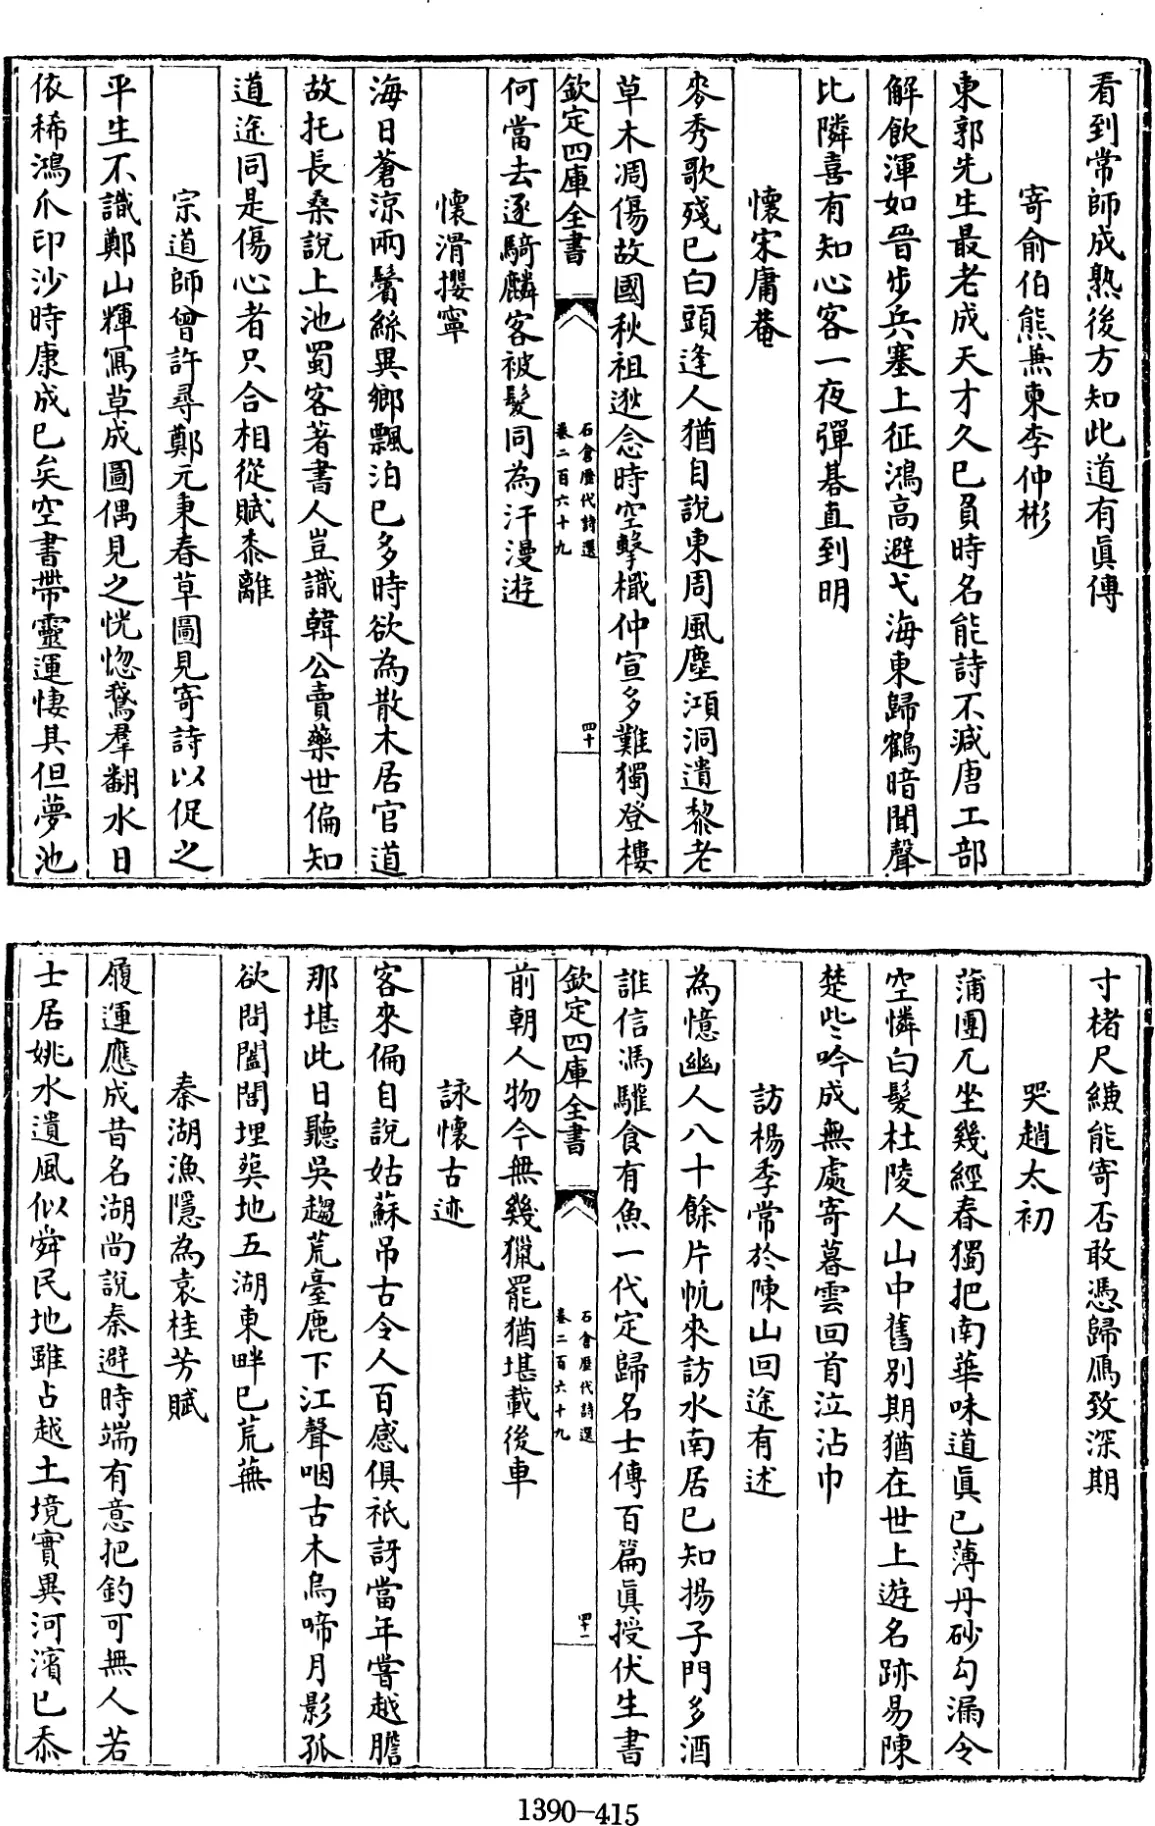 看到常師成熟後方知此道有眞傳
寄俞伯熊兼東李仲彬
東郭先生最老成天才久已負時名能詩不減唐工部
解飲渾如晉步兵塞上征鴻高避弋海東歸鶴暗聞聲
比隣喜有知心客一夜彈碁直到明
懷宋庸菴
麥秀歌殘已白頭逢人猶自說東周風塵澒洞遺黎老
草木凋傷故國秋祖逖念時空擊檝仲宣多難獨登樓
欽定四庫全書
石倉歷代詩選
卷二百六十九
四十
何當去逐騎麟客被髮同為汗漫遊
懷滑攖寧
海日蒼涼兩鬢絲異鄉飄泊已多時欲為散木居官道
故托長桑說上池蜀客著書人豈識韓公賣藥世偏知
道途同是傷心者只合相從賦黍離
宗道師曾許尋鄭元秉春草圖見寄詩以促之
平生不識鄭山輝寫草成圖偶見之恍惚鶩羣翻水日
依稀鴻爪印沙時康成已矣空書帶靈運悽其但夢池
寸楮尺縑能寄否敢憑歸鴈致深期
哭趙太初
蒲團兀坐幾經春獨把南華味道眞已薄丹砂勾漏令
空憐白髮杜陵人山中舊別期猶在世上遊名跡易陳
楚些吟成無處寄暮雲回首泣沾巾
訪楊季常於陳山回途有述
為憶幽人八十餘片帆來訪水南居已知揚子門多酒
誰信馮驩食有魚一代定歸名士傳百篇眞授伏生書
欽定四庫全書
石倉歷代詩選
卷二百六十九
四十一
前朝人物今無幾獵罷猶堪載後車
詠懷古迹
客來偏自說姑蘇吊古令人百感俱祇訝當年嘗越膽
那堪此日聽吳趨荒臺鹿下江聲咽古木烏啼月影孤
欲問闔閭埋𦵏地五湖東畔已荒蕪
秦湖漁隱為袁桂芳賦
履運應成昔名湖尚說秦避時端有意把釣可無人若
士居姚水遺風似舜民地雖占越土境實異河濱已忝
1390-415